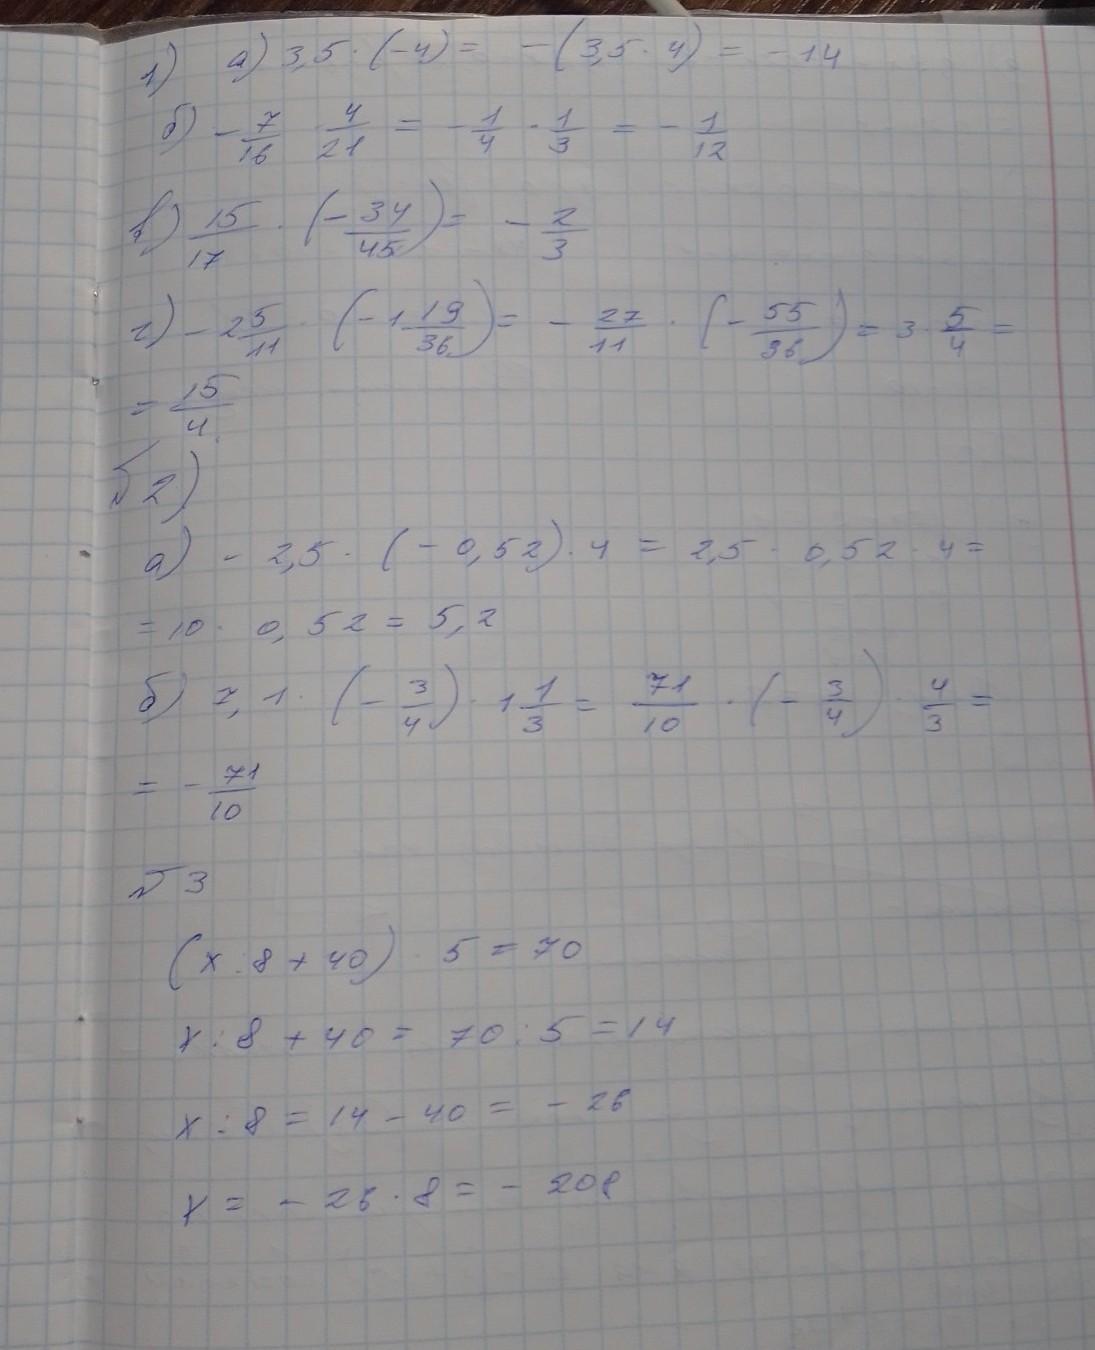 1) а) 3,5 · (-4) = -(3,5 · 4) = -14
б) - 7/16 · 4/21 = - 1/4 · 1/3 = - 1/12
в) 15/17 · (- 34/45) = - 2/3
г) - 2 5/11 · (- 1 19/36) = - 27/11 · (- 55/36) = 3 · 5/4 =
= 15/4
№2)
а) - 2,5 · (- 0,52) · 4 = 2,5 · 0,52 · 4 =
= 10 · 0,52 = 5,2
б) 7,1 · (- 3/4) · 1 1/3 = 71/10 · (- 3/4) · 4/3 =
= - 71/10
№3
(x : 8 + 40) · 5 = 70
x : 8 + 40 = 70 : 5 = 14
x : 8 = 14 - 40 = - 26
x = - 26 · 8 = - 208